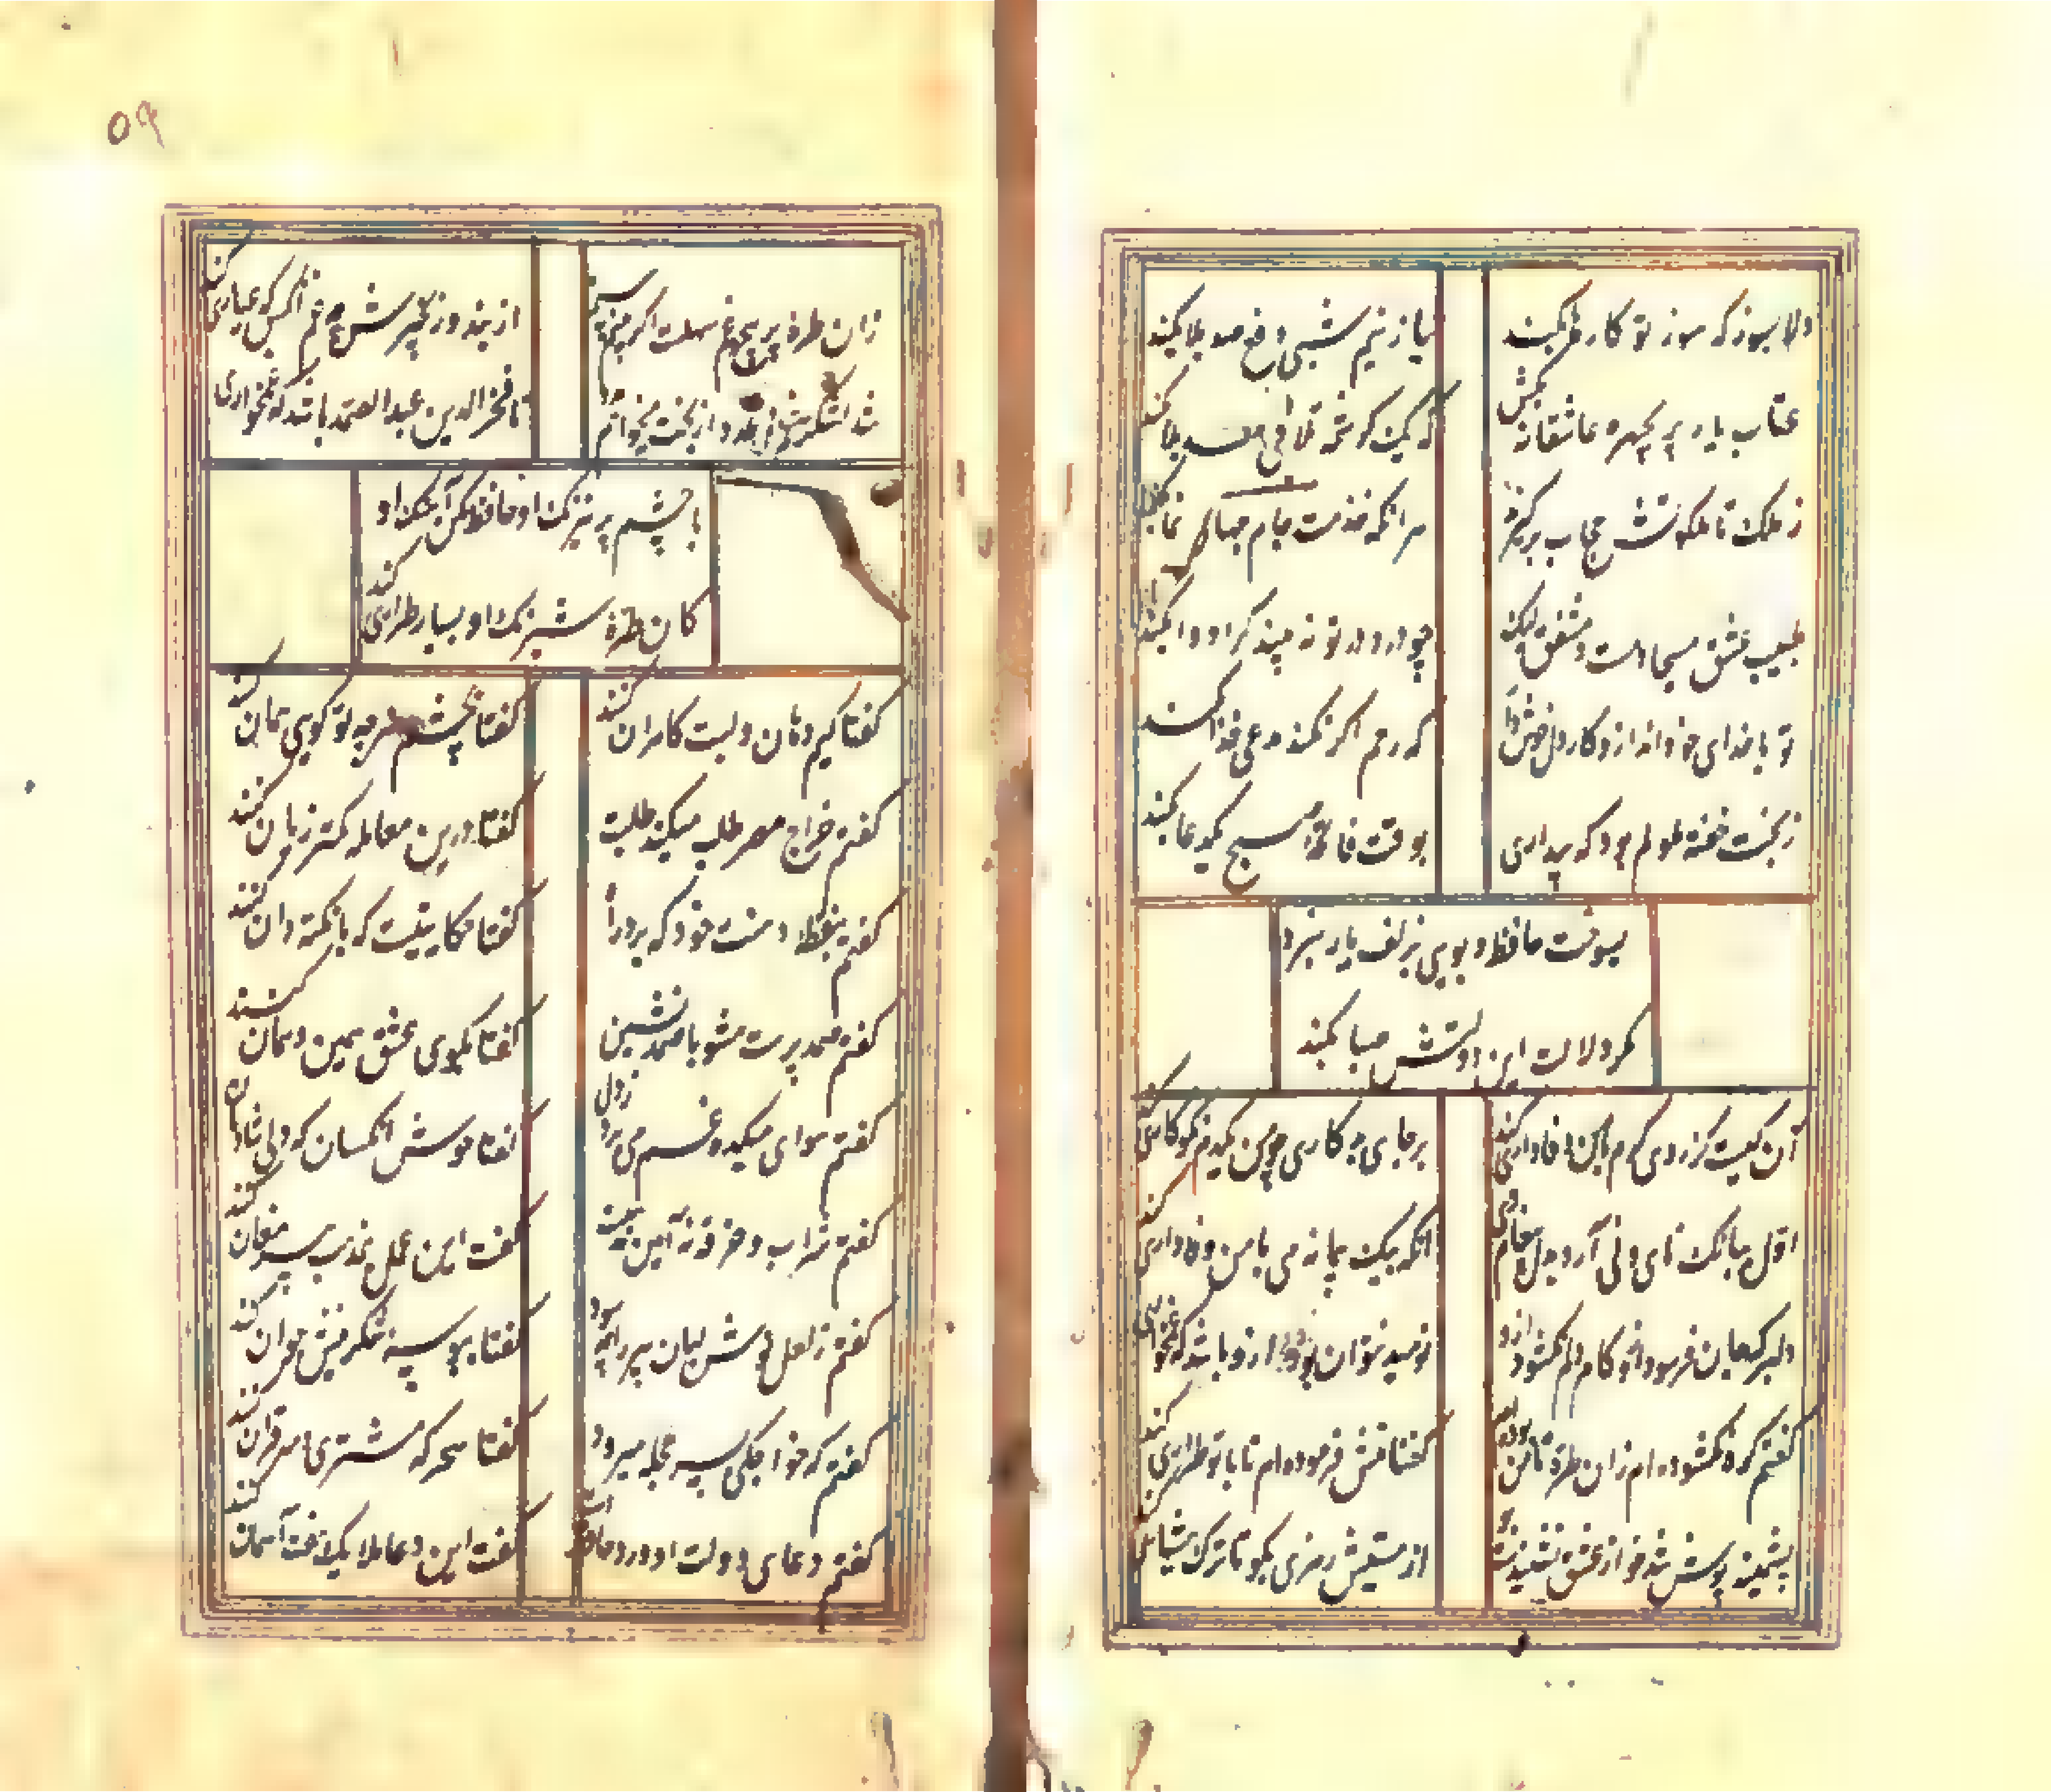 دلا بسوز که سوز تو کارها بکند
نیاز نیم شبی دفع صد بلا بکند
عتاب یار پریچهره عاشقانه بکش
که یک کرشمه تلافی صد بلا بکند
ز ملک تا ملکوتش حجاب برگیرند
هرانکه خدمت جام جهان نما بکند
طبیب عشق مسیحا دمست و مشفق لیک
چو درد در تو نه بیند کرا دوا بکند
تو با خدای خود انداز کار و دل خوش دار
که رحم اگر نکند مدعی خدا بکند
ز بخت خفته ملولم بود که بیداری
بوقت فاتحه صبح یک دعا بکند
بسوخت حافظ و بویی بزلف یار نبرد
مگر دلالت این دولتش صبا بکند
آن کیست کز روی کرم با من وفاداری کند
بر جای بدکاری چو من یکدم نکوکاری کند
اول ببانک نای و نی آرد بدل پیغام وی
انگه بیک پیمانه می با من وفاداری کند
دلبر که جان فرسود ازو کام دلم نکشود ازو
نومید نتوان بود ازو باشد که دلداری کند
کفتم کره نکشوده ام زان طره تا من بوده ام
کفتا منش فرموده ام تا با تو طراری کند
پشمینه پوش تند خو از عشق نشنیدست بو
از مستیش رمزی بکو تا ترک هشیاری کند
۵۹
زان طره پر پیچ و خم سهلست اکر بینم ستم
از بند و زنجیرش چه غم انکس که عیاری کند
شد لشکر غم بی عدد از بخت میخواهم مدد
تا فخر الدین عبد الصمد باشد که غمخواری کند
با چشم پر نیرنک او حافظ مکن آهنک او
کان طره شبرنک او بسیار طراری کند
کفتم کیم دهان و لبت کامران کنند
کفتا بچشم هرچه تو کویی همان کنند
کفتم خراج مصر طلب میکند لبت
کفتا درین معامله کمتر زیان کنند
کفتم بنقطه دهنت خود که برد راه
کفتا حکایتیست که با نکته دان کنند
کفتم صنم پرست مشو با صمد نشین
کفتا بکوی عشق همین و همان کنند
کفتم هوای میکده غم می برد ز دل
کفتا خوش انکسان که دلی شادمان کنند
کفتم شراب و خرقه نه آیین مذهبست
کفت این عمل بمذهب پیر مغان کنند
کفتم ز لعل نوش لبان پیر را چه سود
کفتا ببوسه شکرینش جوان کنند
کفتم که خواجه کی بسر حجله میرود
کفتا سحر که مشتری و مه قران کنند
کفتم دعای دولت او ورد حافظ است
کفت این دعا ملایک هفت آسمان کنند